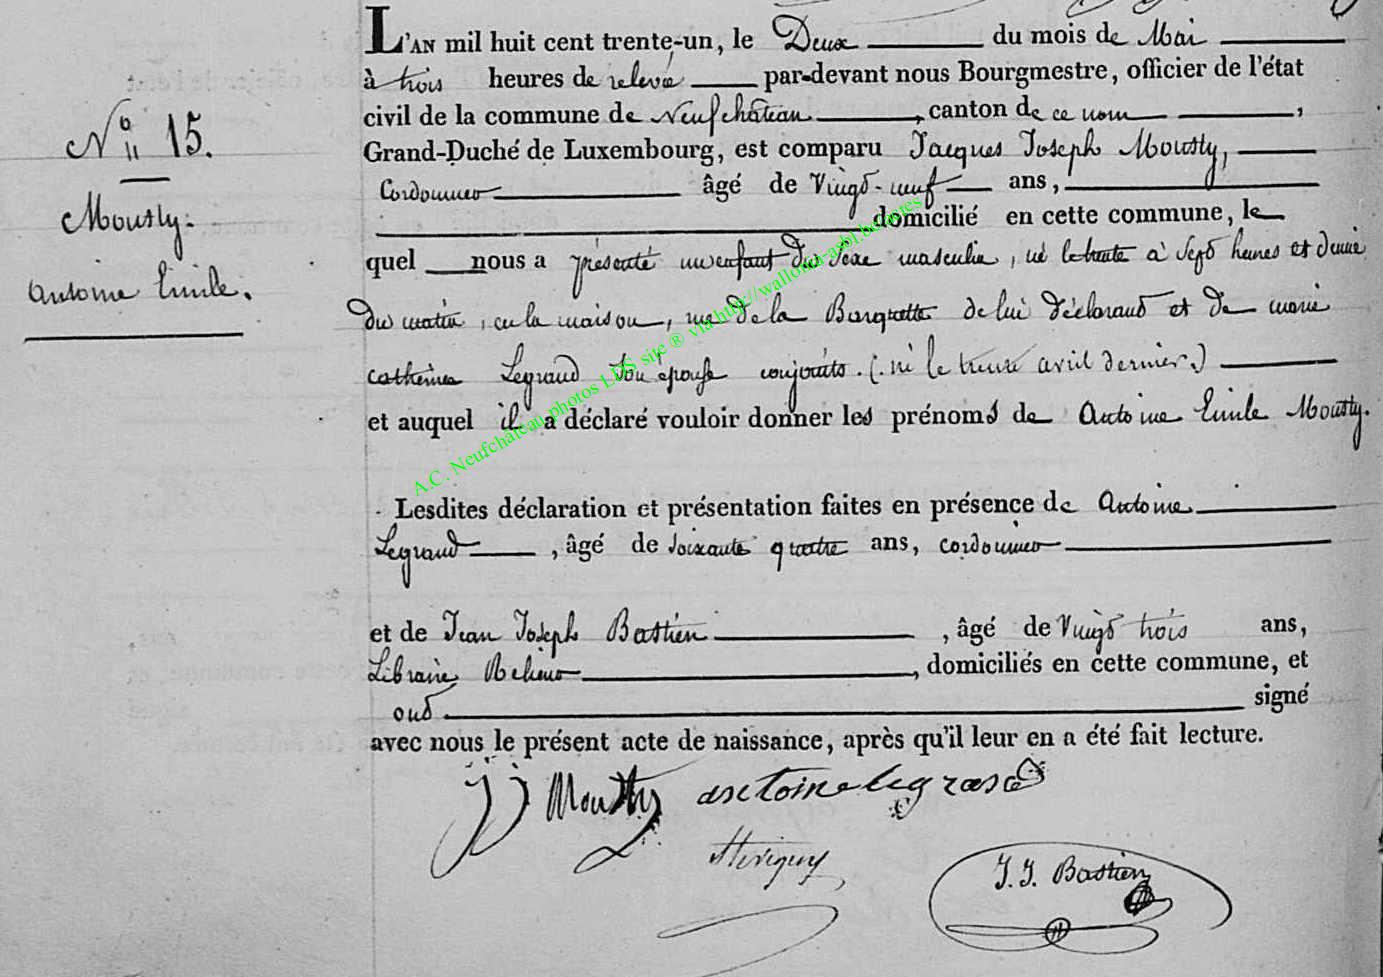 L'AN mil huit cent trente-un, le Deux du mois de Mai
à trois heures de relevée par-devant nous Bourgmestre, officier de l'état
civil de la commune de Neufchâteau, canton de ce nom,
Grand-Duché de Luxembourg, est comparu Jacques Joseph Mousty,
Cordonnier âgé de Vingt-neuf ans,
domicilié en cette commune, le
quel nous a présenté un enfant du sexe masculin, né le trente à sept heures et demie
du matin, en la maison, rue de la Barquette de lui déclarant et de marie
catherine Legrand son épouse conjoints. (né le trente avril dernier.)
et auquel il a déclaré vouloir donner les prénoms de Antoine Emile Mousty.
Lesdites déclaration et présentation faites en présence de Antoine
Legrand, âgé de soixante quatre ans, cordonnier
et de Jean Joseph Bastien, âgé de Vingt trois ans,
Libraire Relieur, domiciliés en cette commune, et
ont signé
avec nous le présent acte de naissance, après qu'il leur en a été fait lecture.
JJ Mousty antoine legrand
J. J. Bastien
N° 15.
Mousty.
Antoine Emile.
A.C. Neufchâteau photos LDS site ® via http://wallonia-asbl.be/actes